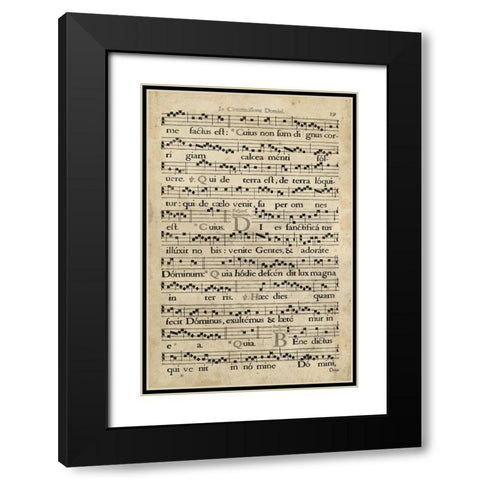 In Circumcisione Domini. 19
me factus est: * Cuius non sum di gnus cor
ri giam calcea ménti sol-
uere. ℣. Qui de terra est, de terra lóqui-
tur: qui de cælo venit, su per om nes
est. * Cuius. DI es sanctificá tus
illúxit no bis: venite Gentes, & adoráte
Dóminum: * Quia hódie descén dit lux magna
in ter ris. ℣. Hæc dies quam
fecit Dóminus, exultémus & læté mur in
e a. * Quia. BEne dictus
qui ve nit in nó mine Dó mini,
Deus